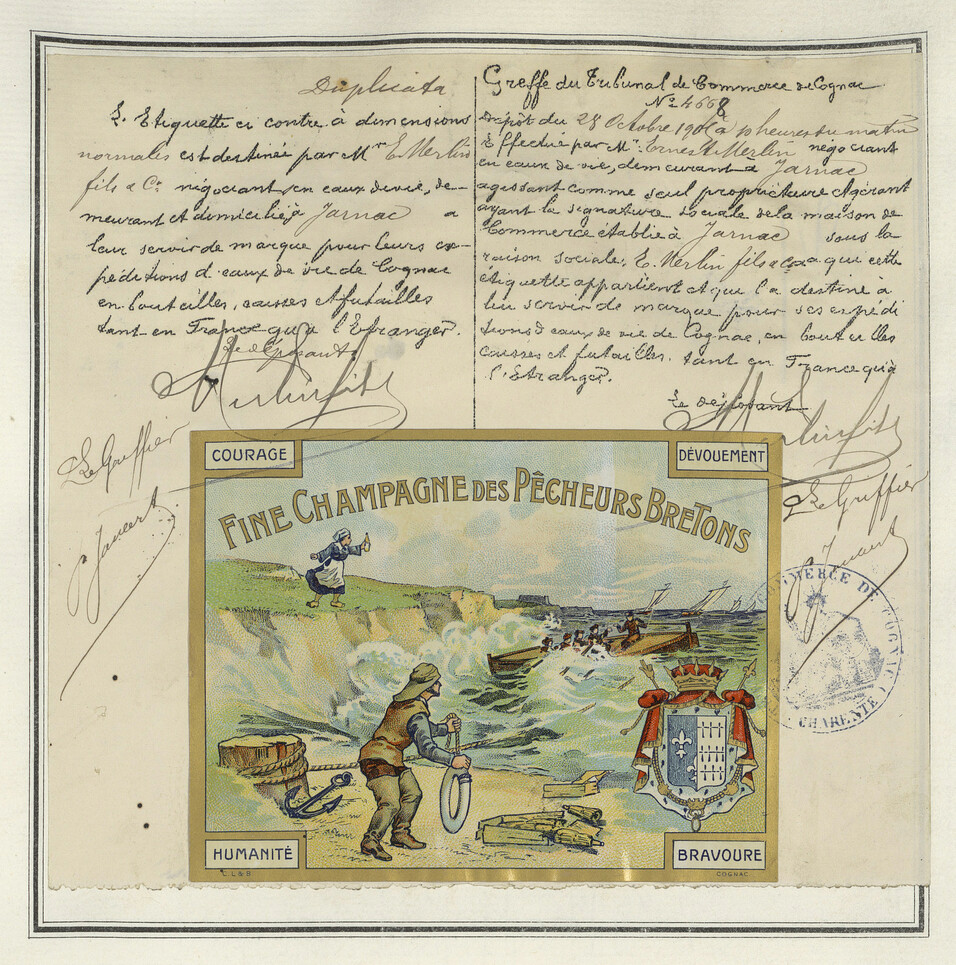 Duplicata
L'Etiquette ci contre à dimensions
normales est destinée par Mr E. Merlin
fils & Co négociant en eaux de vie, de-
meurant et domicilié à Jarnac a
leur servir de marque pour leurs ex-
péditions d'eaux de vie de Cognac
en bouteilles, caisses et futailles
tant en France qu'à l'Etranger.
Le déposant
Merlin fils
Le Greffier
Greffe du Tribunal de Commerce de Cognac
No 4668
Dépôt du 28 Octobre à 10 heures du matin
Effectué par Mr Ernest Merlin négociant
en eaux de vie, demeurant à Jarnac
agissant comme seul propriétaire et gérant
ayant la signature sociale de la maison de
Commerce établie à Jarnac sous la
raison sociale, E. Merlin fils & Co a qui cette
étiquette appartient et qui l'a destiné à
lui servir de marque pour ses expédi
tions d'eaux de vie de Cognac, en bouteilles
caisses et futailles, tant en France qu'à
l'Etranger.
Le déposant
Merlin fils
Le Greffier
COURAGE
DÉVOUEMENT
FINE CHAMPAGNE DES PÊCHEURS BRETONS
HUMANITÉ
BRAVOURE
C. L. & B
COGNAC
COMMERCE DE COGNAC
CHARENTE